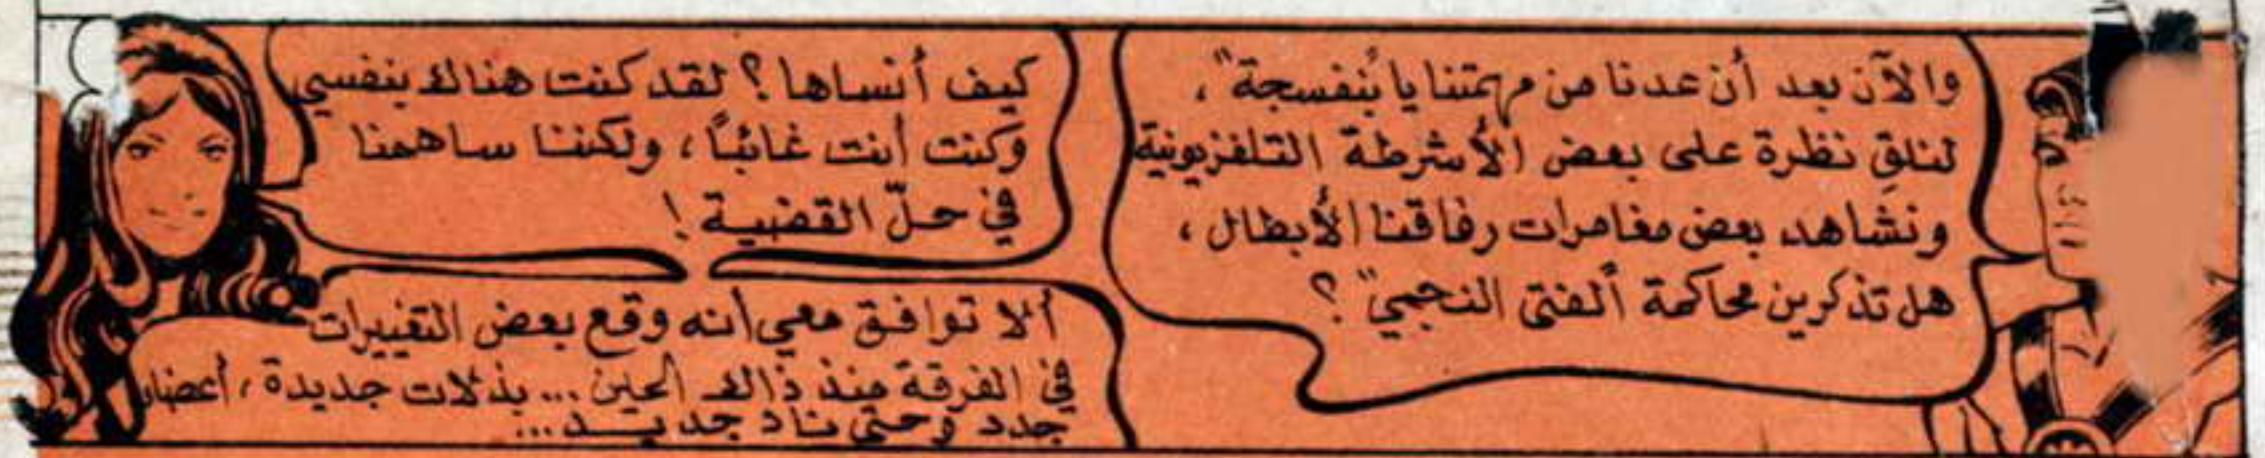 والآن بعد أن عدنا من مهمتنا يا "بنفسجة"،
لنلقِ نظرة على بعض الأشرطة التلفزيونية
ونشاهد بعض مغامرات رفاقنا الأبطال،
هل تذكرين محاكمة "الفتى النجمي"؟
كيف أنساها؟ لقد كنت هناك بنفسي
وكنت أنت غائبًا، ولكننا ساهمنا
في حلّ القضية!
ألا توافق معي أنه وقع بعض التغييرات
في الفرقة منذ ذالك الحين... بذلات جديدة، أعضاء
جدد وحتى ناد جديد...